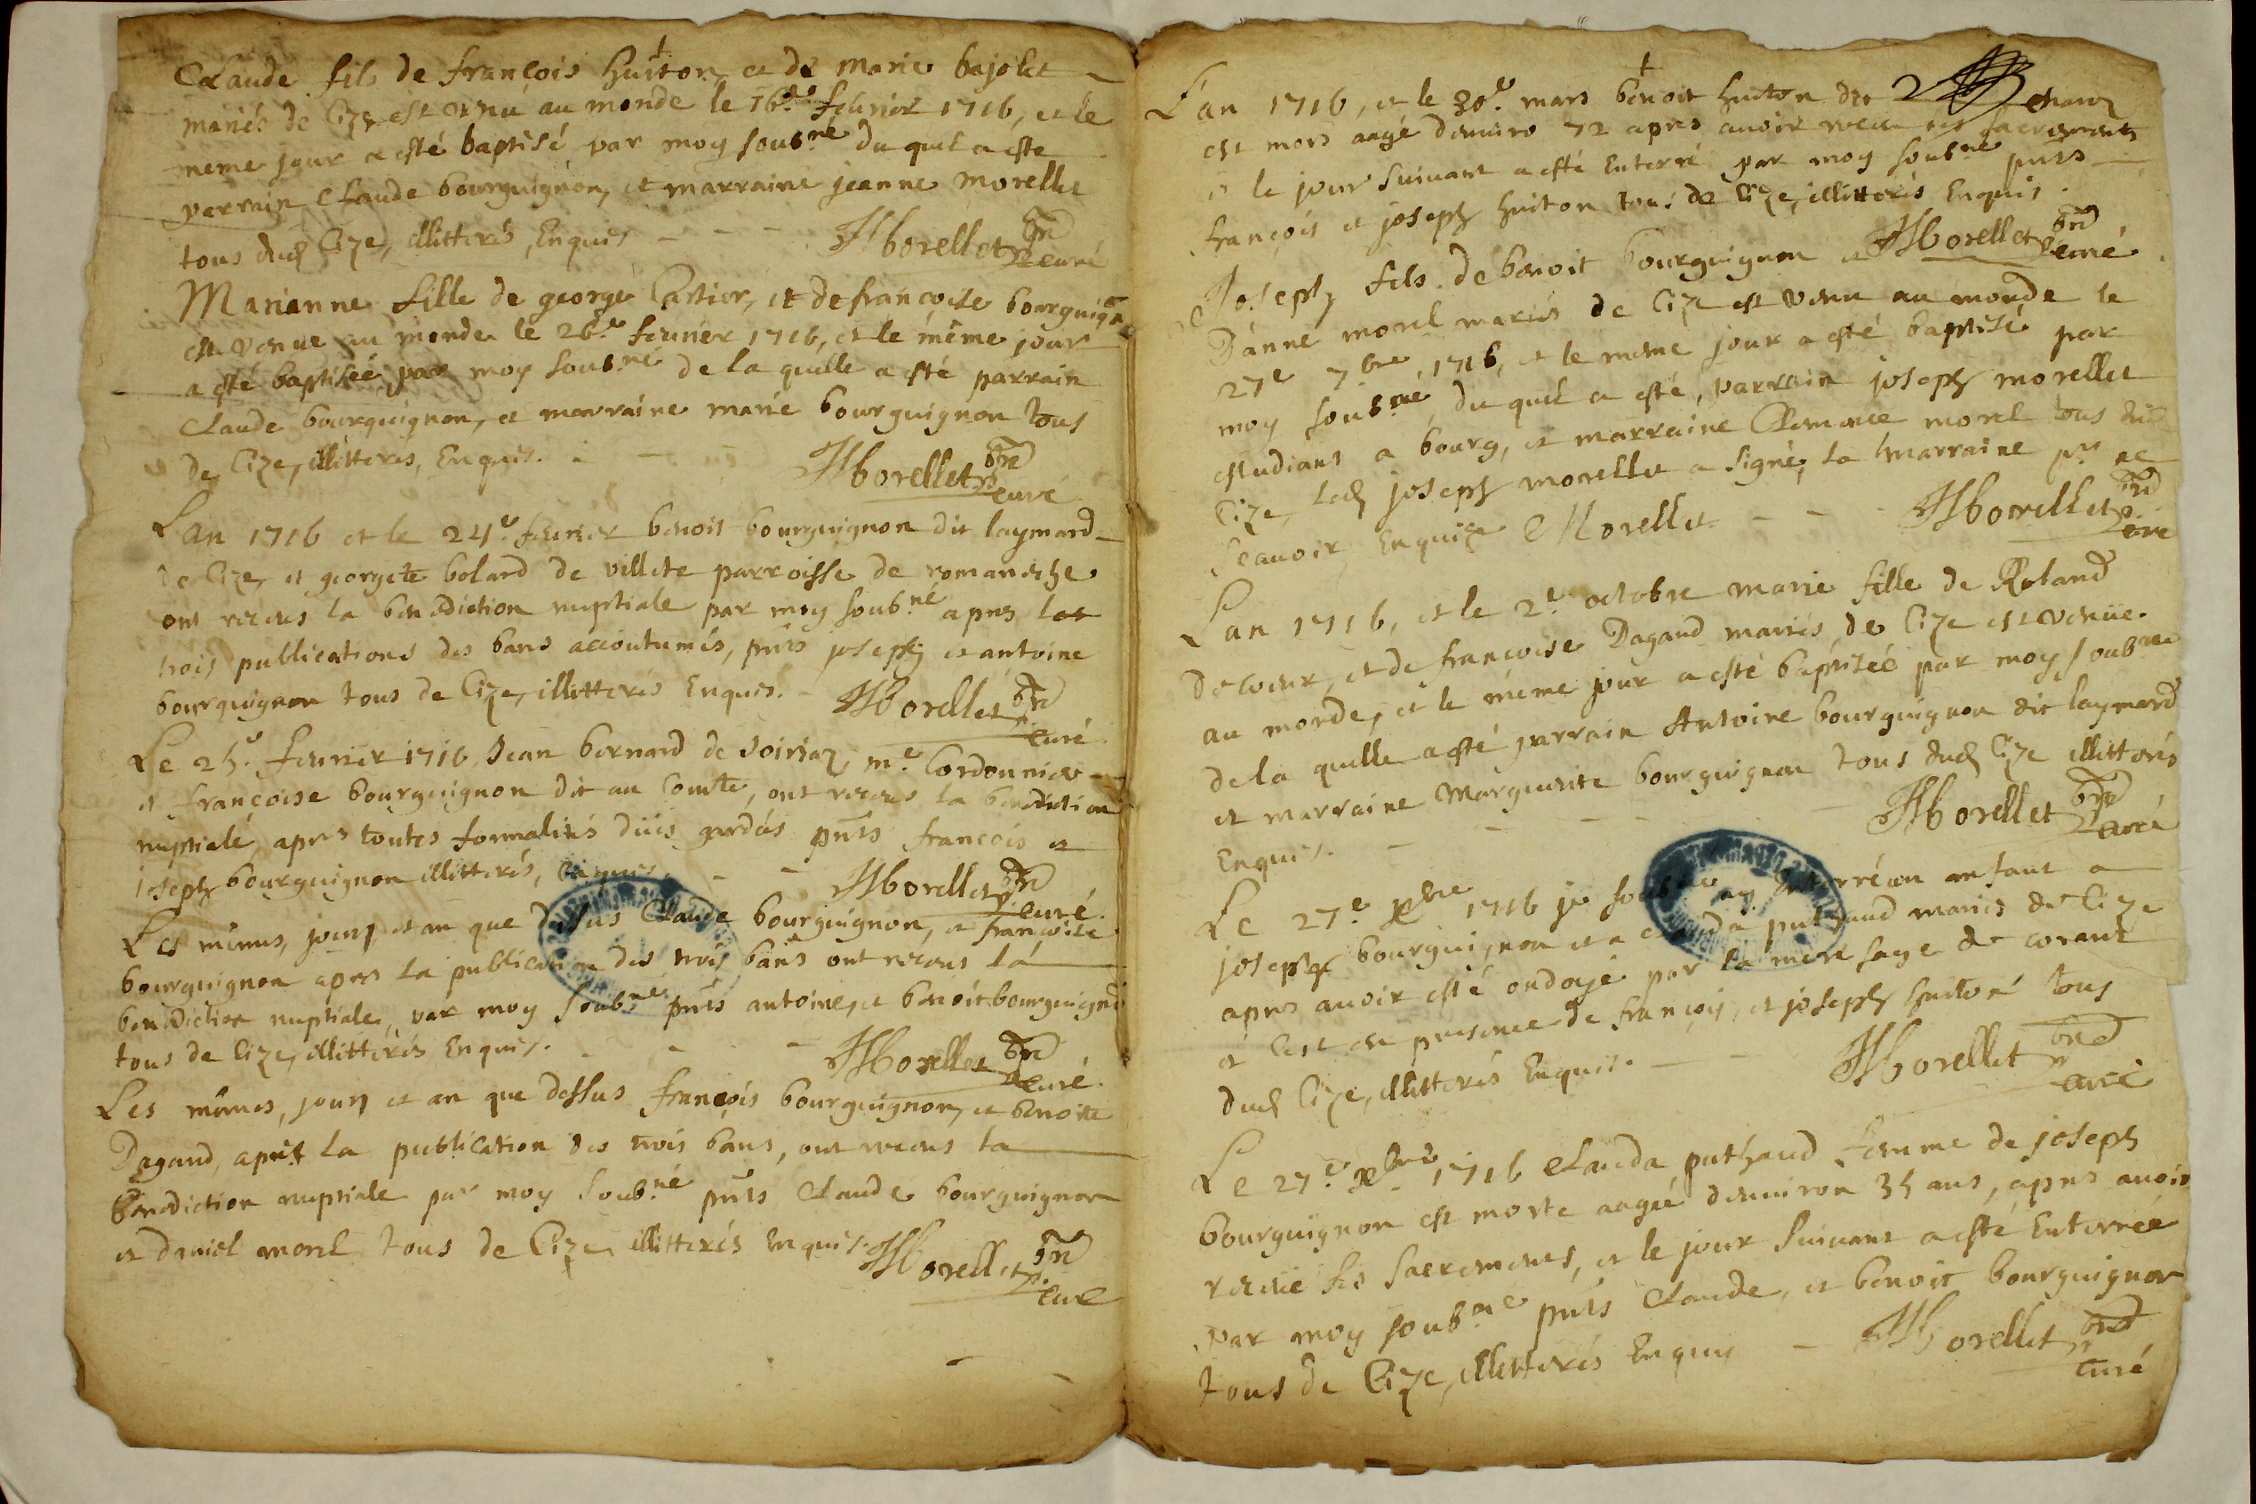 Claude fils de françois huiton, et de marie bajolet
mariés de Cize est venu au monde le 16.e feurier 1716, et le
meme jour a esté baptisé par moy soub.né du quel a esté
parrain Claude bourguignon, et marraine jeanne morellet
tous dud Cize, illitterés, Enquis
Morellet pre curé
Marianne fille de george Cartier, et de francoise bourguign
est venue au monde le 26.e feurier 1716, et le même jour
a esté baptisée par moy soub.né de la quelle a esté parrain
Claude bourguignon, et marraine marie bourguignon tous
de Cize, illitterés, Enquis.
Morellet pre curé
L'an 1716 et le 24.e feurier benoit bourguignon dit laymard
de Cize, et georgete bolard de villete parroisse de romaneche
ont receus la benediction nuptiale par moy soub.né apres les
trois publications des bans accoutumés, pnts joseph et antoine
bourguignon tous de Cize, illitterés Enquis.
Morellet pre curé
Le 25.e feurier 1716 Jean bernard de m.e Cordonnier
et françoise bourguignon dit au Comte, ont receus la benediction
nuptiale, apres toutes formalités düis gardées pnts francois et
joseph bourguignon illitterés, Enquis.
Morellet pre curé
Les mêmes, jour et an que dessus Claude bourguignon, et françoise
bourguignon apres la publication des trois bans ont receus la
benediction nuptiale, par moy soub.né pnts antoine, et benoit bourguignon
tous de Cize, illitterés Enquis.
Morellet pre curé
Les mêmes, jour et an que dessus françois bourguignon, et benoite
Dagand, apres la publication des trois bans, ont receus la
benediction nuptiale par moy soub.né pnts Claude bourguignon
et daniel morel tous de Cize, illitterés Enquis.
Morellet pre curé
L'an 1716, et le 30.e mars benoit huiton de
est mors aagé denuiro 72 apres auoir receu ses sacrements
et le jour suiuant a esté Enterré par moy soub.né pnts
françois et joseph huiton tous de Cize, illitterés Enquis.
Morellet pre curé
Joseph fils de benoit bourguignon et
D'anne morel mariés de Cize est venu au monde le
27.e 7.bre 1716, et le meme jour a esté baptisé par
moy soub.né, du quel a esté, parrain joseph morellet
estudiant a bourg, et marraine Clemence morel tous dud
Cize, led joseph morellet a signé, la marraine pr ne
scauoir Enquise Morellet
Morellet pre curé
L'an 1716, et le 2.e octobre marie fille de Roland
Decoeur, et de francoise Dagand mariés, de Cize est venüe
au monde, et le meme jour a esté baptisée par moy soub.né
de la quelle a esté parrain Antoine bourguignon dit laymard
et marraine Marguerite bourguignon tous dud Cize illitterés
Enquis.
Morellet pre curé
Le 27.e xbre 1716 je soub.né ay Enterré un enfant a
joseph bourguignon et a Clauda puthaud mariés de Cize
apres auoir esté ondoyé par la mere sage de corant
et c'est en presence de françois, et joseph huiton tous
dud Cize, illitterés Enquis.
Morellet pre curé
Le 27.e xbre 1716 Clauda puthaud femme de joseph
bourguignon est morte aagée denuiron 35 ans, apres auoir
receue ses sacrements, et le jour suiuant a esté Enterrée
par moy soub.né pnts Claude, et benoit bourguignon
tous de Cize, illitterés Enquis
Morellet pre curé